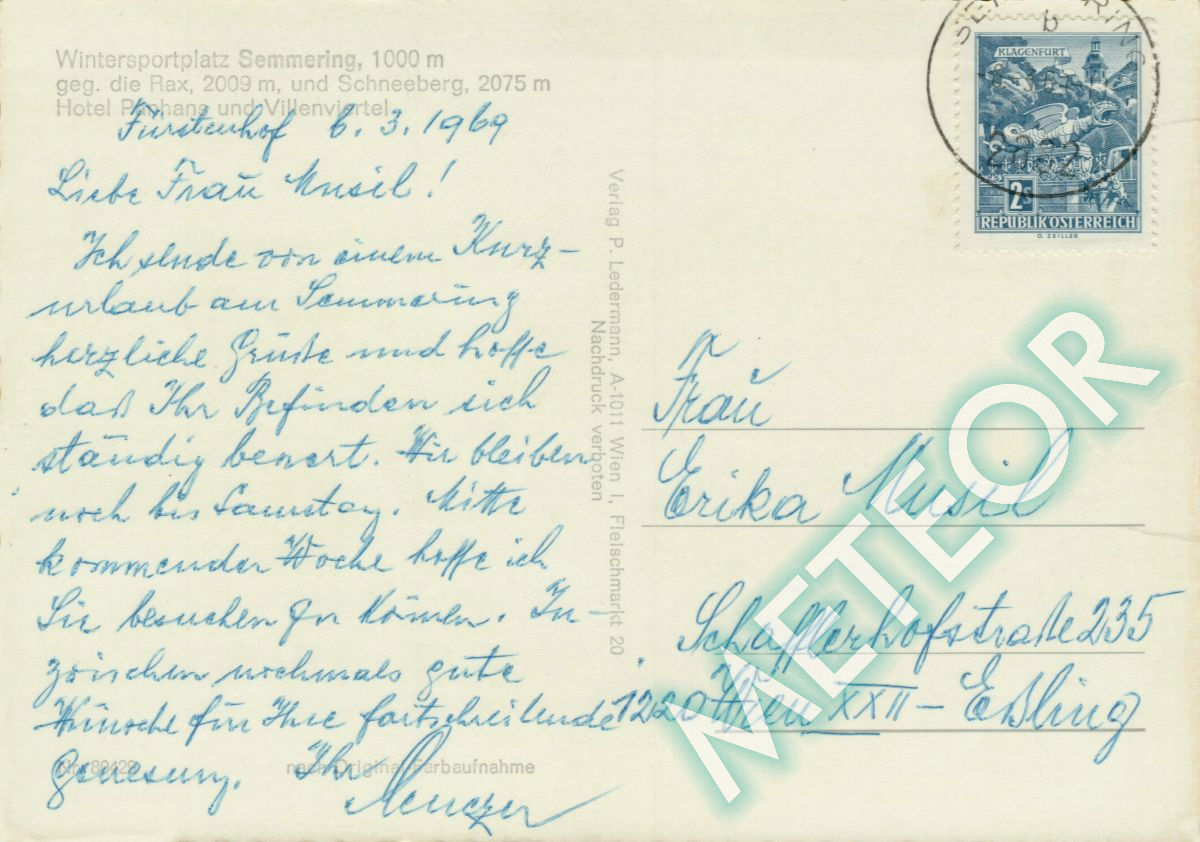 Wintersportplatz Semmering, 1000 m
geg. die Rax, 2009 m, und Schneeberg, 2075 m
Hotel Panhans und Villenviertel
Fürstenhof 6. 3. 1969
Liebe Frau Musil!
Ich sende von einem Kurz-
urlaub am Semmering
herzliche Grüße und hoffe
daß Ihr Befinden sich
ständig bessert. Wir bleiben
noch bis Samstag. Mitte
kommender Woche hoffe ich
Sie besuchen zu können. In-
zwischen nochmals gute
Wünsche für Ihre fortschreitende
Genesung. Ihr
Nr. 80429 nach Original-Farbaufnahme
Verlag P. Ledermann, A-1011 Wien I, Fleischmarkt 20
Nachdruck verboten
SEMMERING
b
2682
KLAGENFURT
2s
REPUBLIK ÖSTERREICH
O. ZEILLER
Frau
Erika Musil
Schafflerhofstraße 235
1220 Wien XXII - Eßling
METEOR